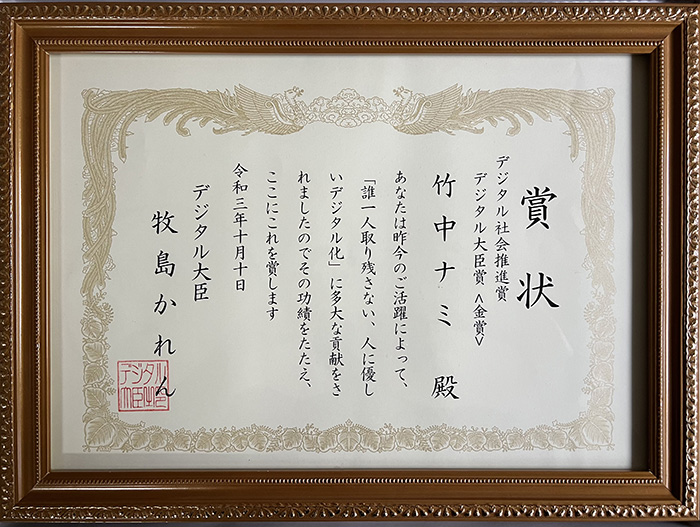 賞状
デジタル社会推進賞
デジタル大臣賞 <金賞>
竹中ナミ 殿
あなたは昨今のご活躍によって、
「誰一人取り残さない、人に優し
いデジタル化」に多大な貢献をさ
れましたのでその功績をたたえ、
ここにこれを賞します
令和三年十月十日
デジタル大臣
牧島かれん
デジタル
大臣之印